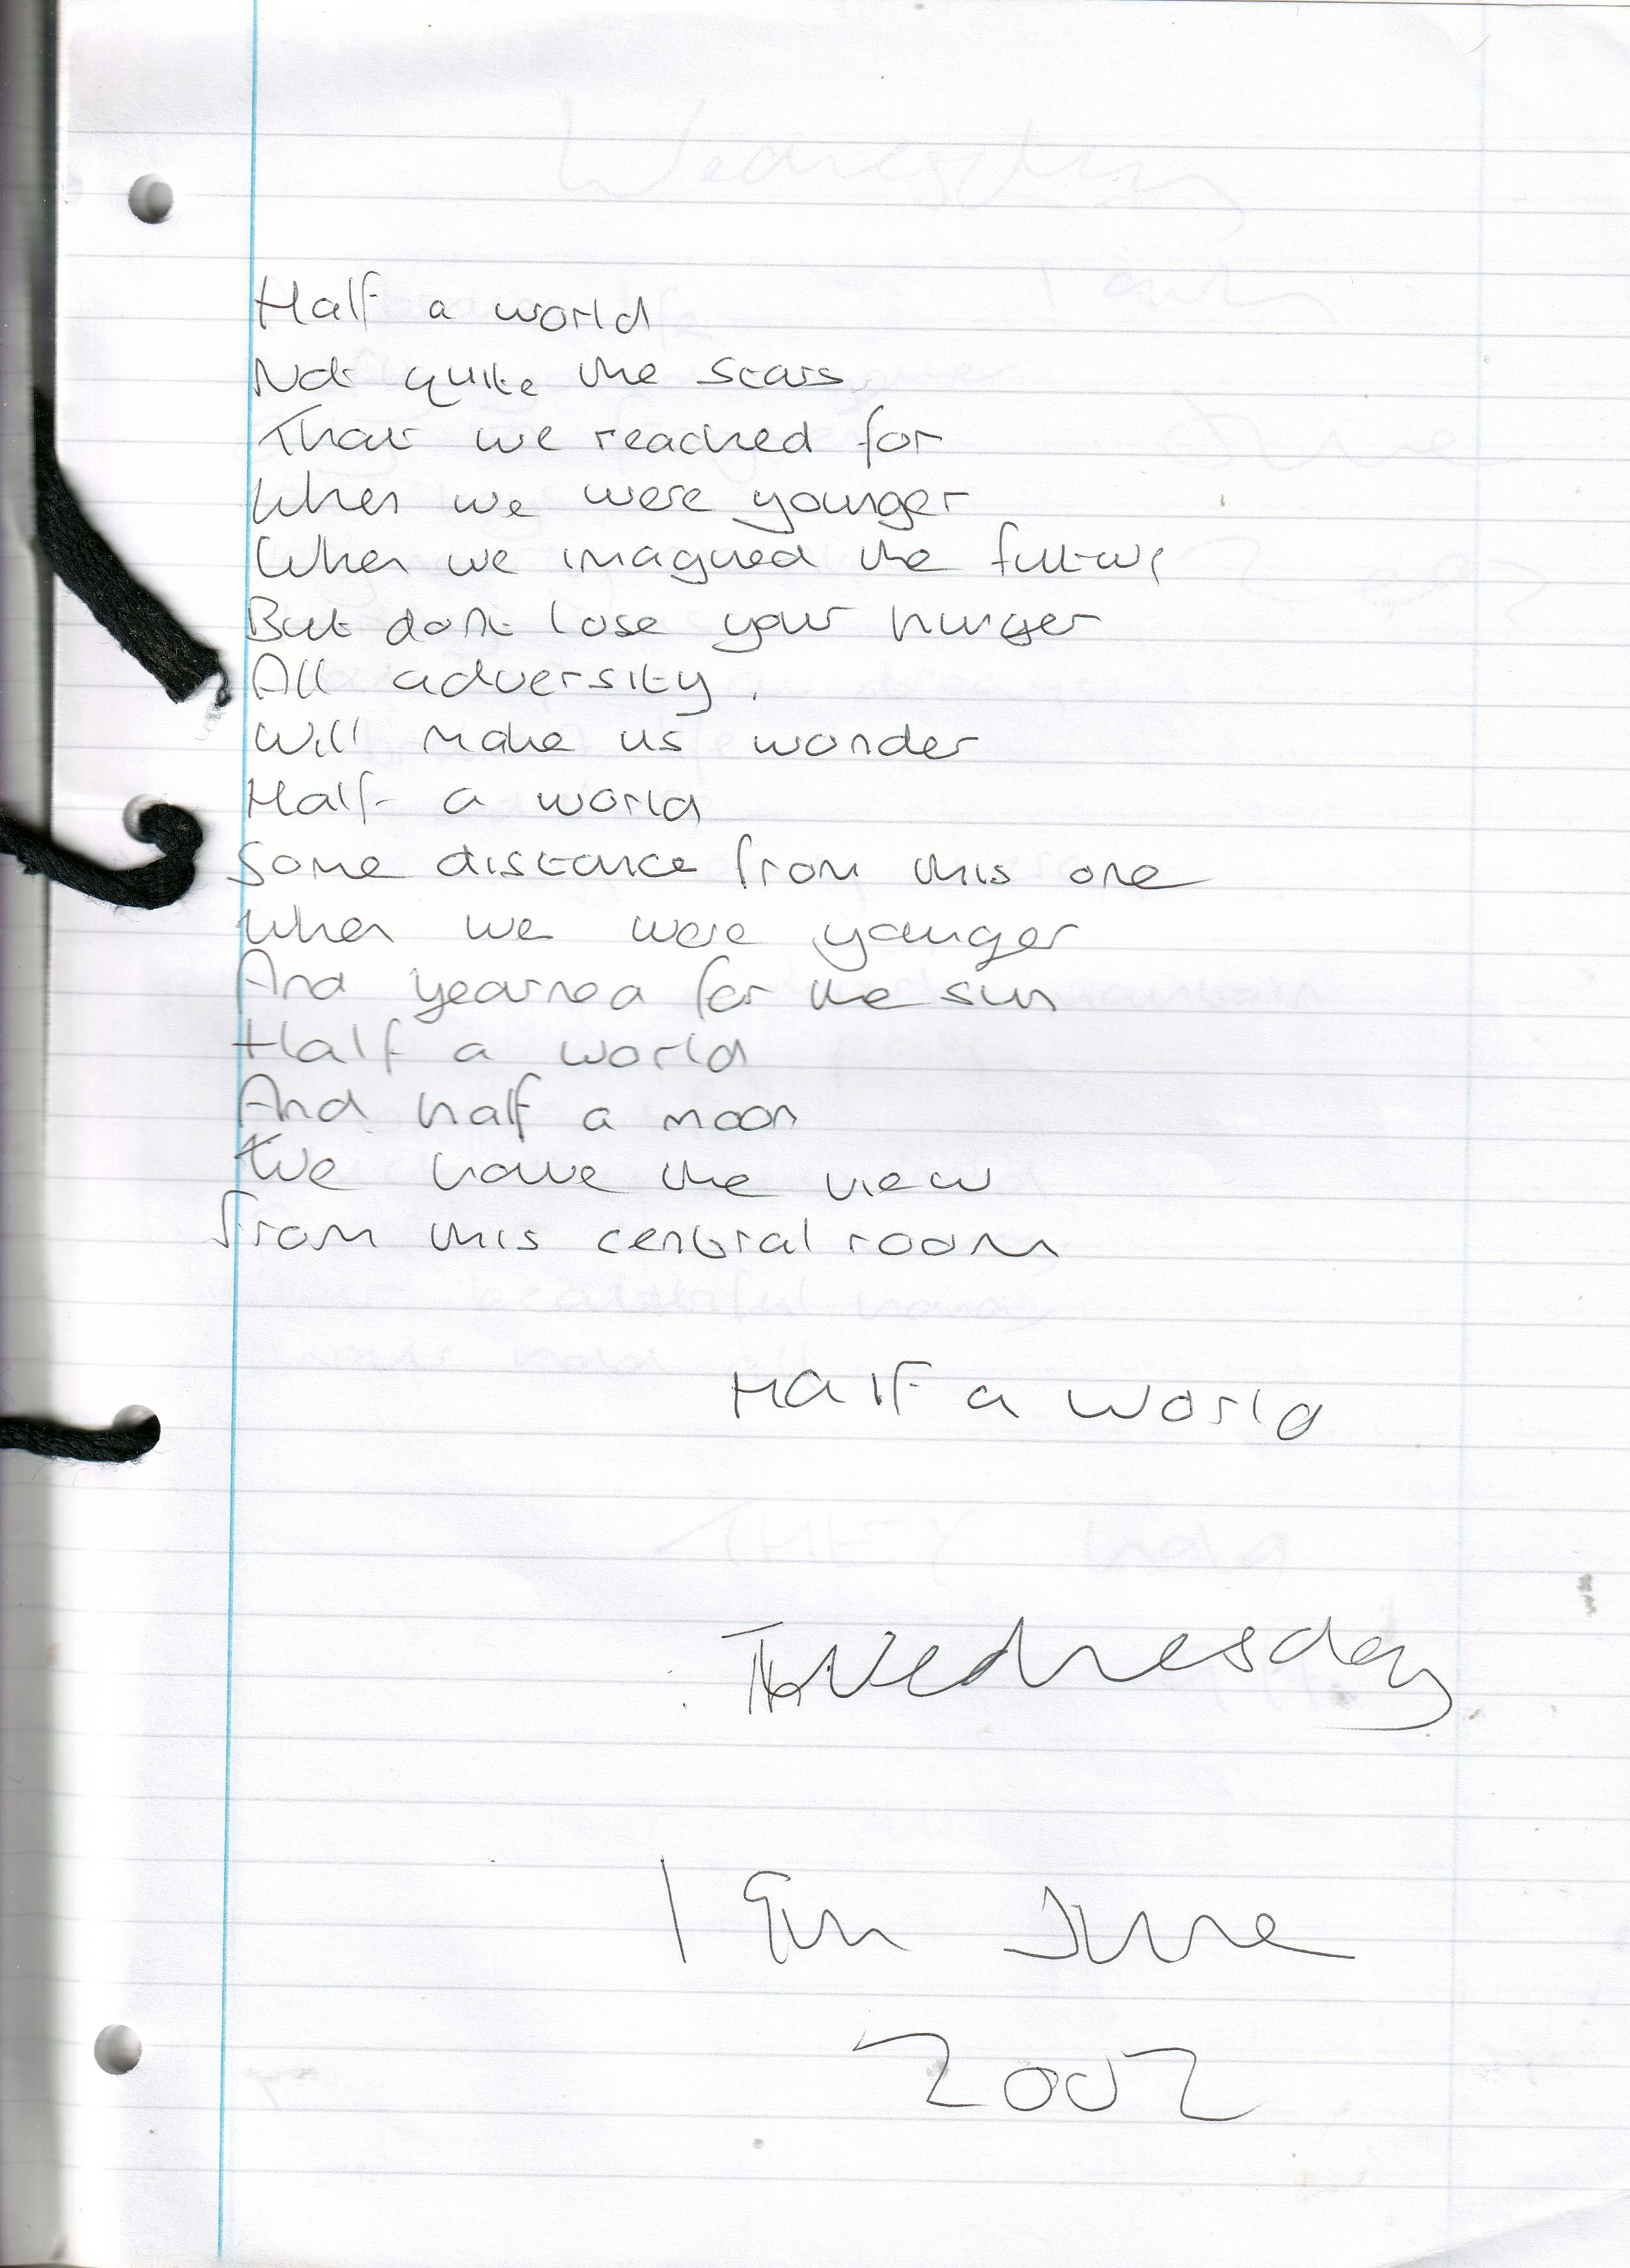 Half a world
Not quite the scars
That we reached for
When we were younger
When we imagined the future
But dont lose your hunger
All adversity.
Will make us wonder
Half a world
Some distance from this one
When we were younger
And yearned for the sun
Half a world
And half a moon
We have the view
From this central room
Half a world
Wednesday
19th June
2002